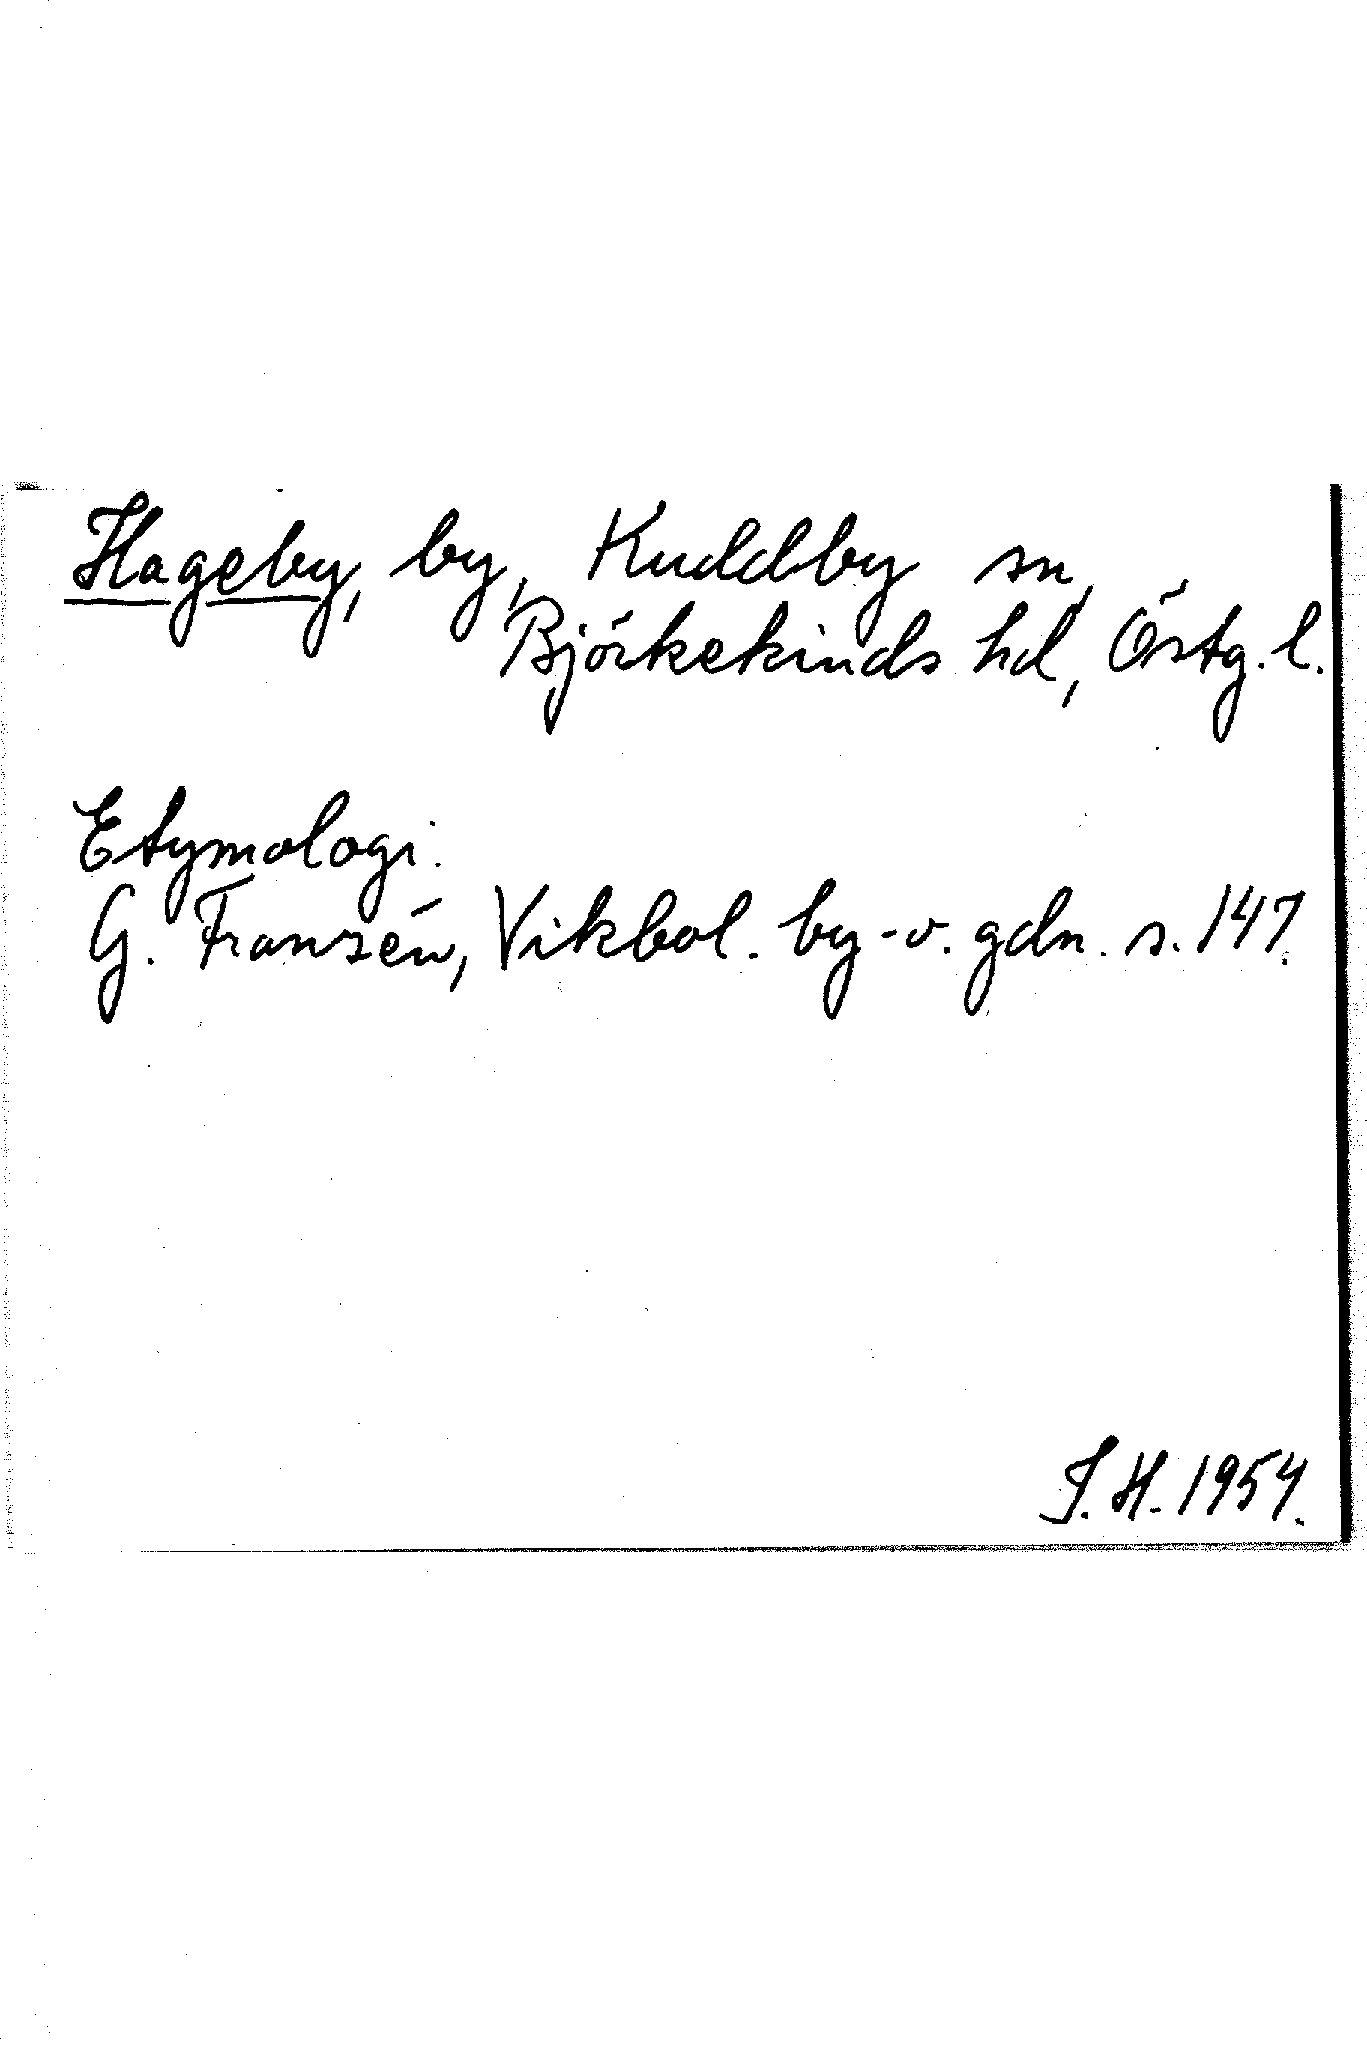 Hageby, by, Kuddby sn,
Björkekinds hd, Östg. l.
Etymologi.
G. Franzén, Vikbol. by- o. gdn. s. 147.
I. H. 1954.